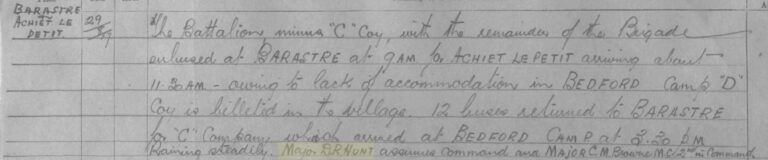 BARASTRE
ACHIET LE
PETIT.
29
The Battalion minus "C" Coy, with the remainder of the Brigade
enbused at BARASTRE at 9AM for ACHIET LE PETIT arriving about
11.30AM - owing to lack of accommodation in BEDFORD Camp "D"
Coy is billeted in the village. 12 buses returned to BARASTRE
for "C" Company which arrived at BEDFORD CAMP at 2.20 pm
Raining steadily. Major D.R HUNT assumes command and MAJOR C.M. Browne M.C. 2nd in Command